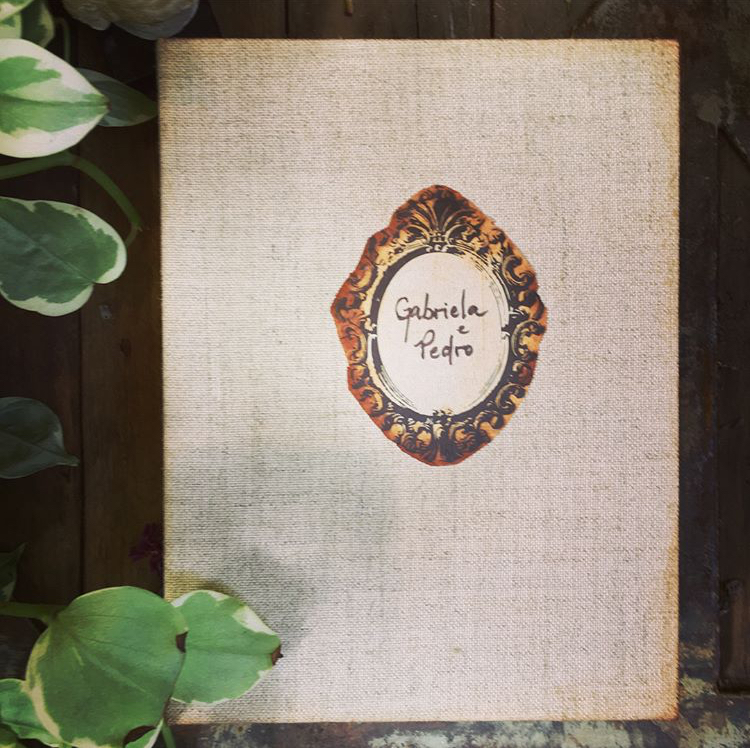 Gabriela
e
Pedro